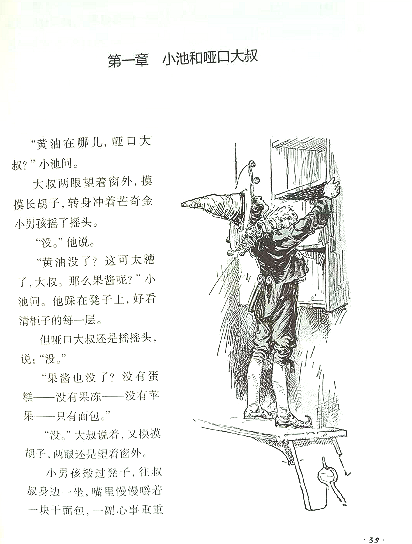 第一章 小池和哑口大叔
“黄油在哪儿，哑口大
叔？”小池问。
大叔两眼望着窗外，摸
摸长胡子，转身冲着芒奇金
小男孩摇了摇头。
“没。”他说。
“黄油没了？这可太糟
了，大叔。那么果酱呢？”小
池问。他踩在凳子上，好看
清柜子的每一层。
但哑口大叔还是摇摇头，
说：“没。”
“果酱也没了？没有蛋
糕——没有果冻——没有苹
果——只有面包。”
“没。”大叔说着，又摸摸
胡子，两眼还是望着窗外。
小男孩搬过凳子，往叔
叔身边一坐，嘴里慢慢嚼着
一块干面包，一副心事重重
·39·